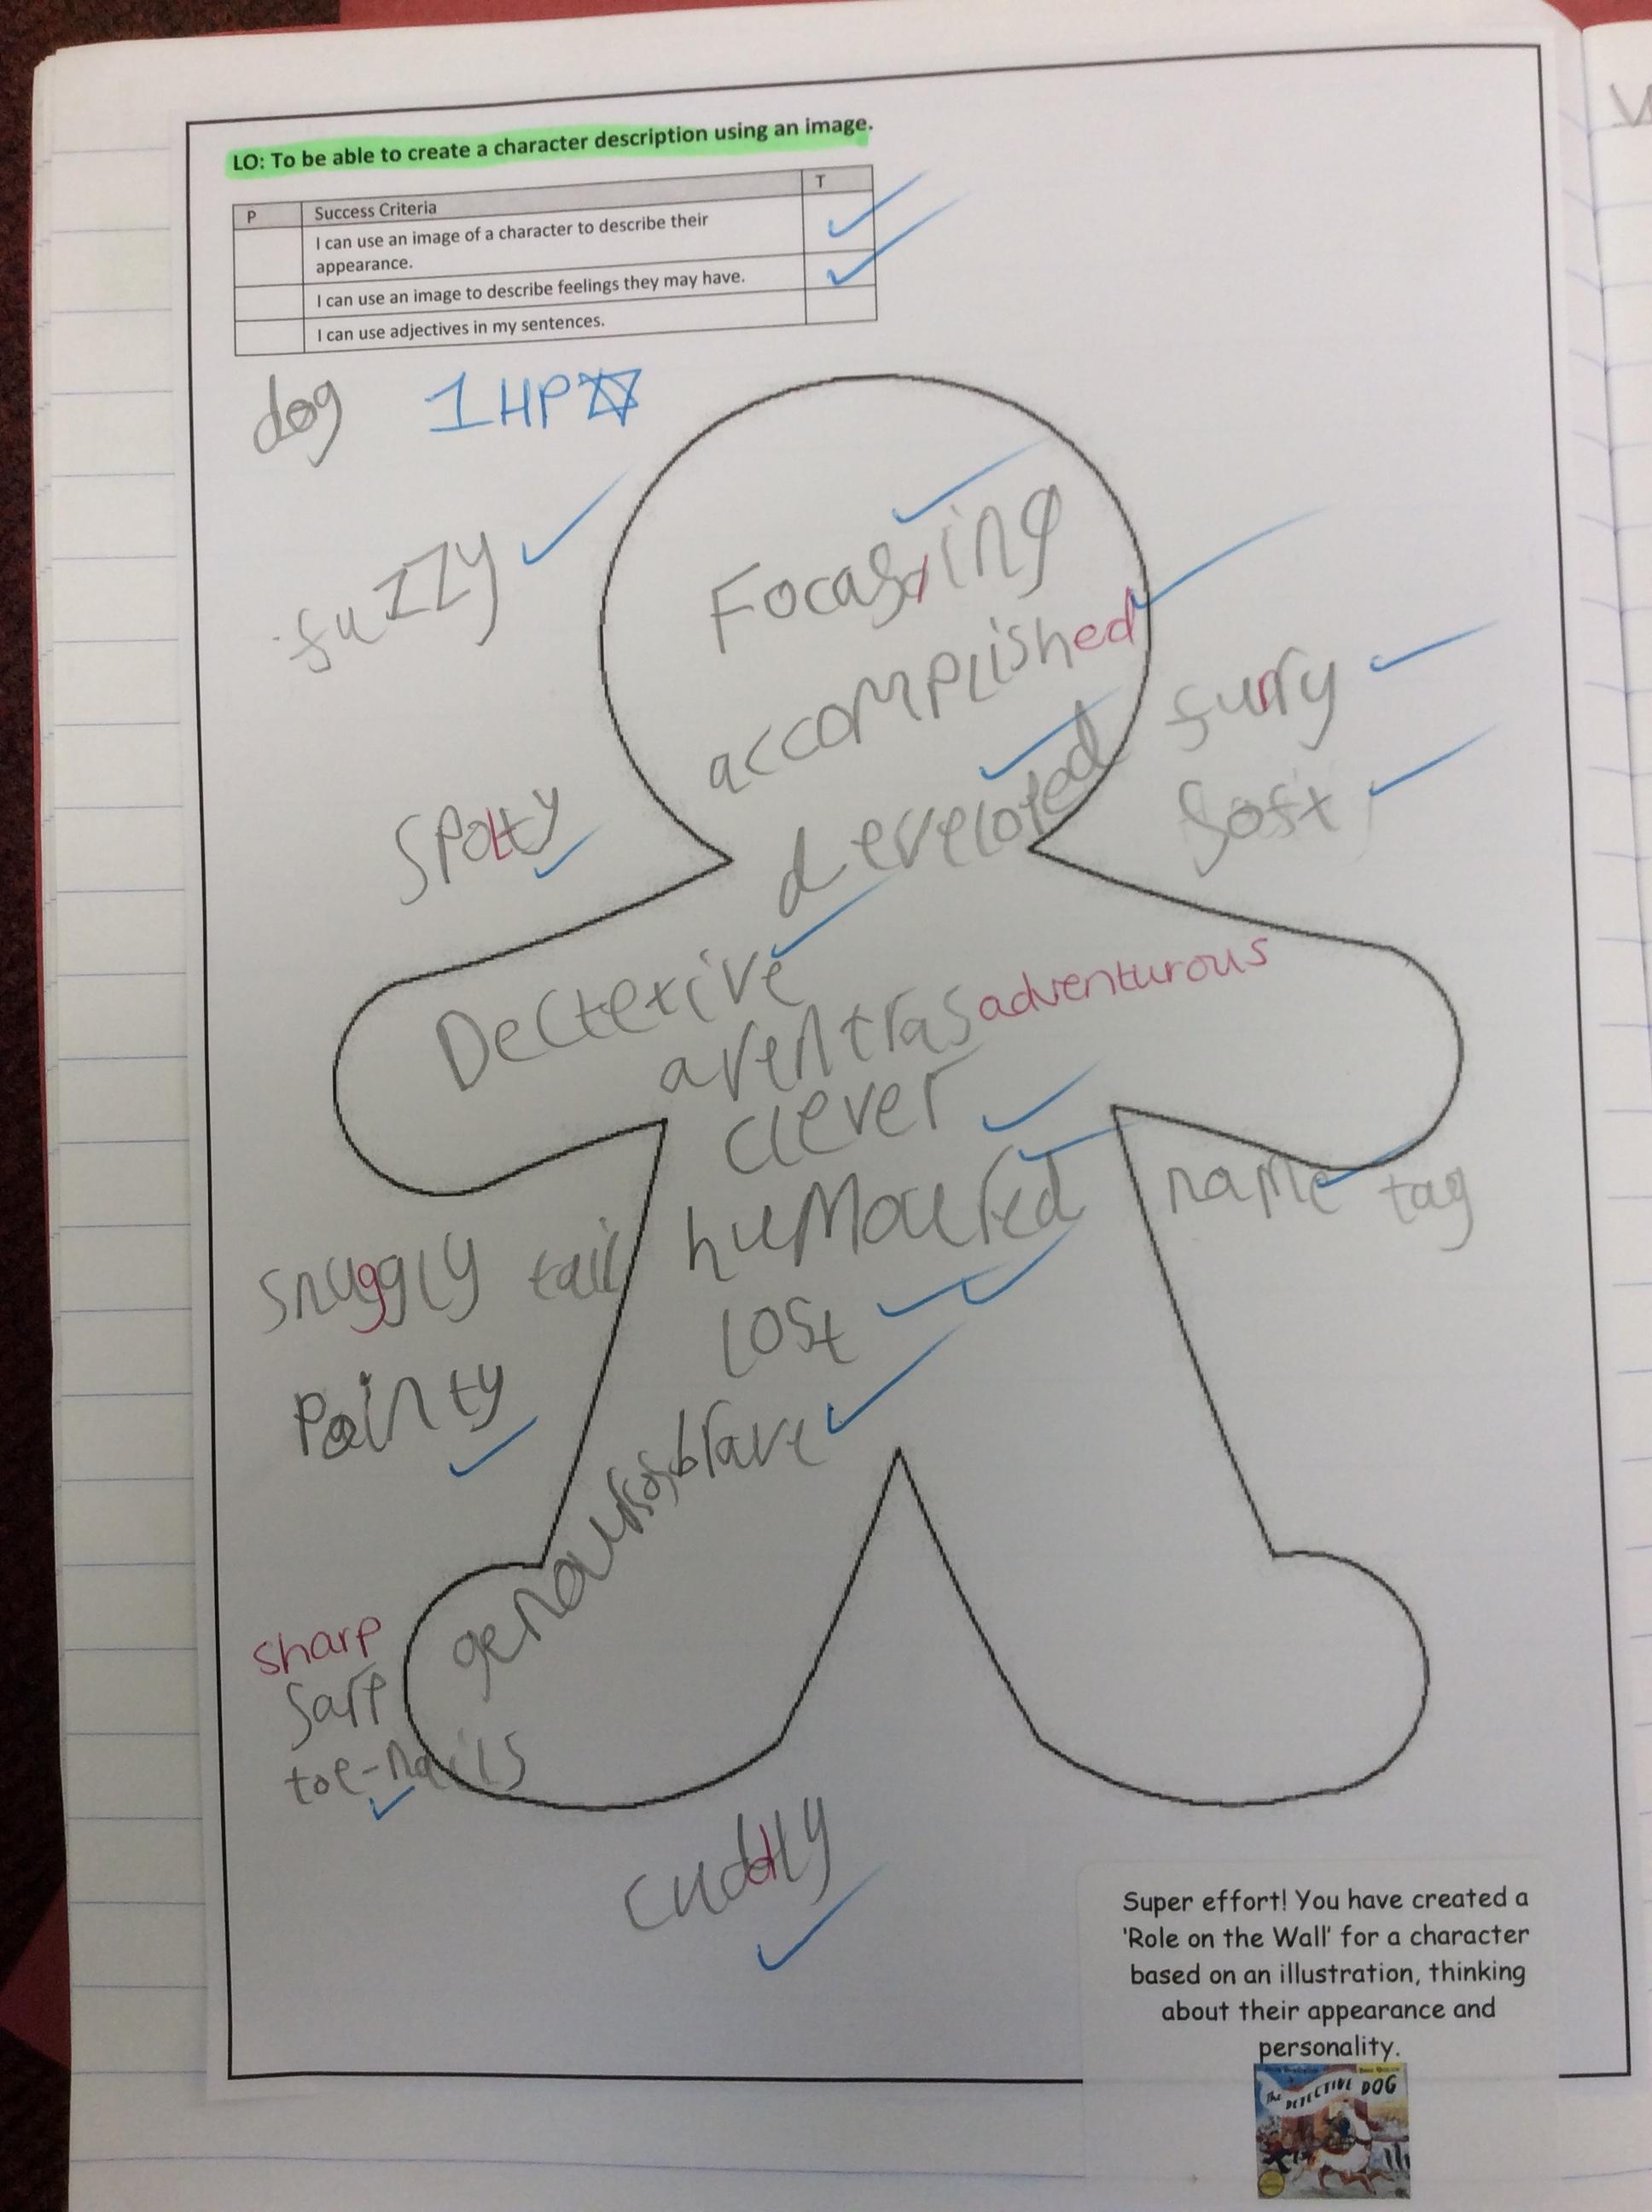 LO: To be able to create a character description using an image.
P Success Criteria T
I can use an image of a character to describe their
appearance.
I can use an image to describe feelings they may have.
I can use adjectives in my sentences.
dog 1HP
fuzzy
Focasing
accomplished
furry
spotty
developed
soft
Dectetive
aventras adventurous
clever
humoured
name tag
snuggly tail
lost
Pointy
brave
sharp
sarp
toe-nails
cuddly
Super effort! You have created a
'Role on the Wall' for a character
based on an illustration, thinking
about their appearance and
personality.
The DETECTIVE DOG